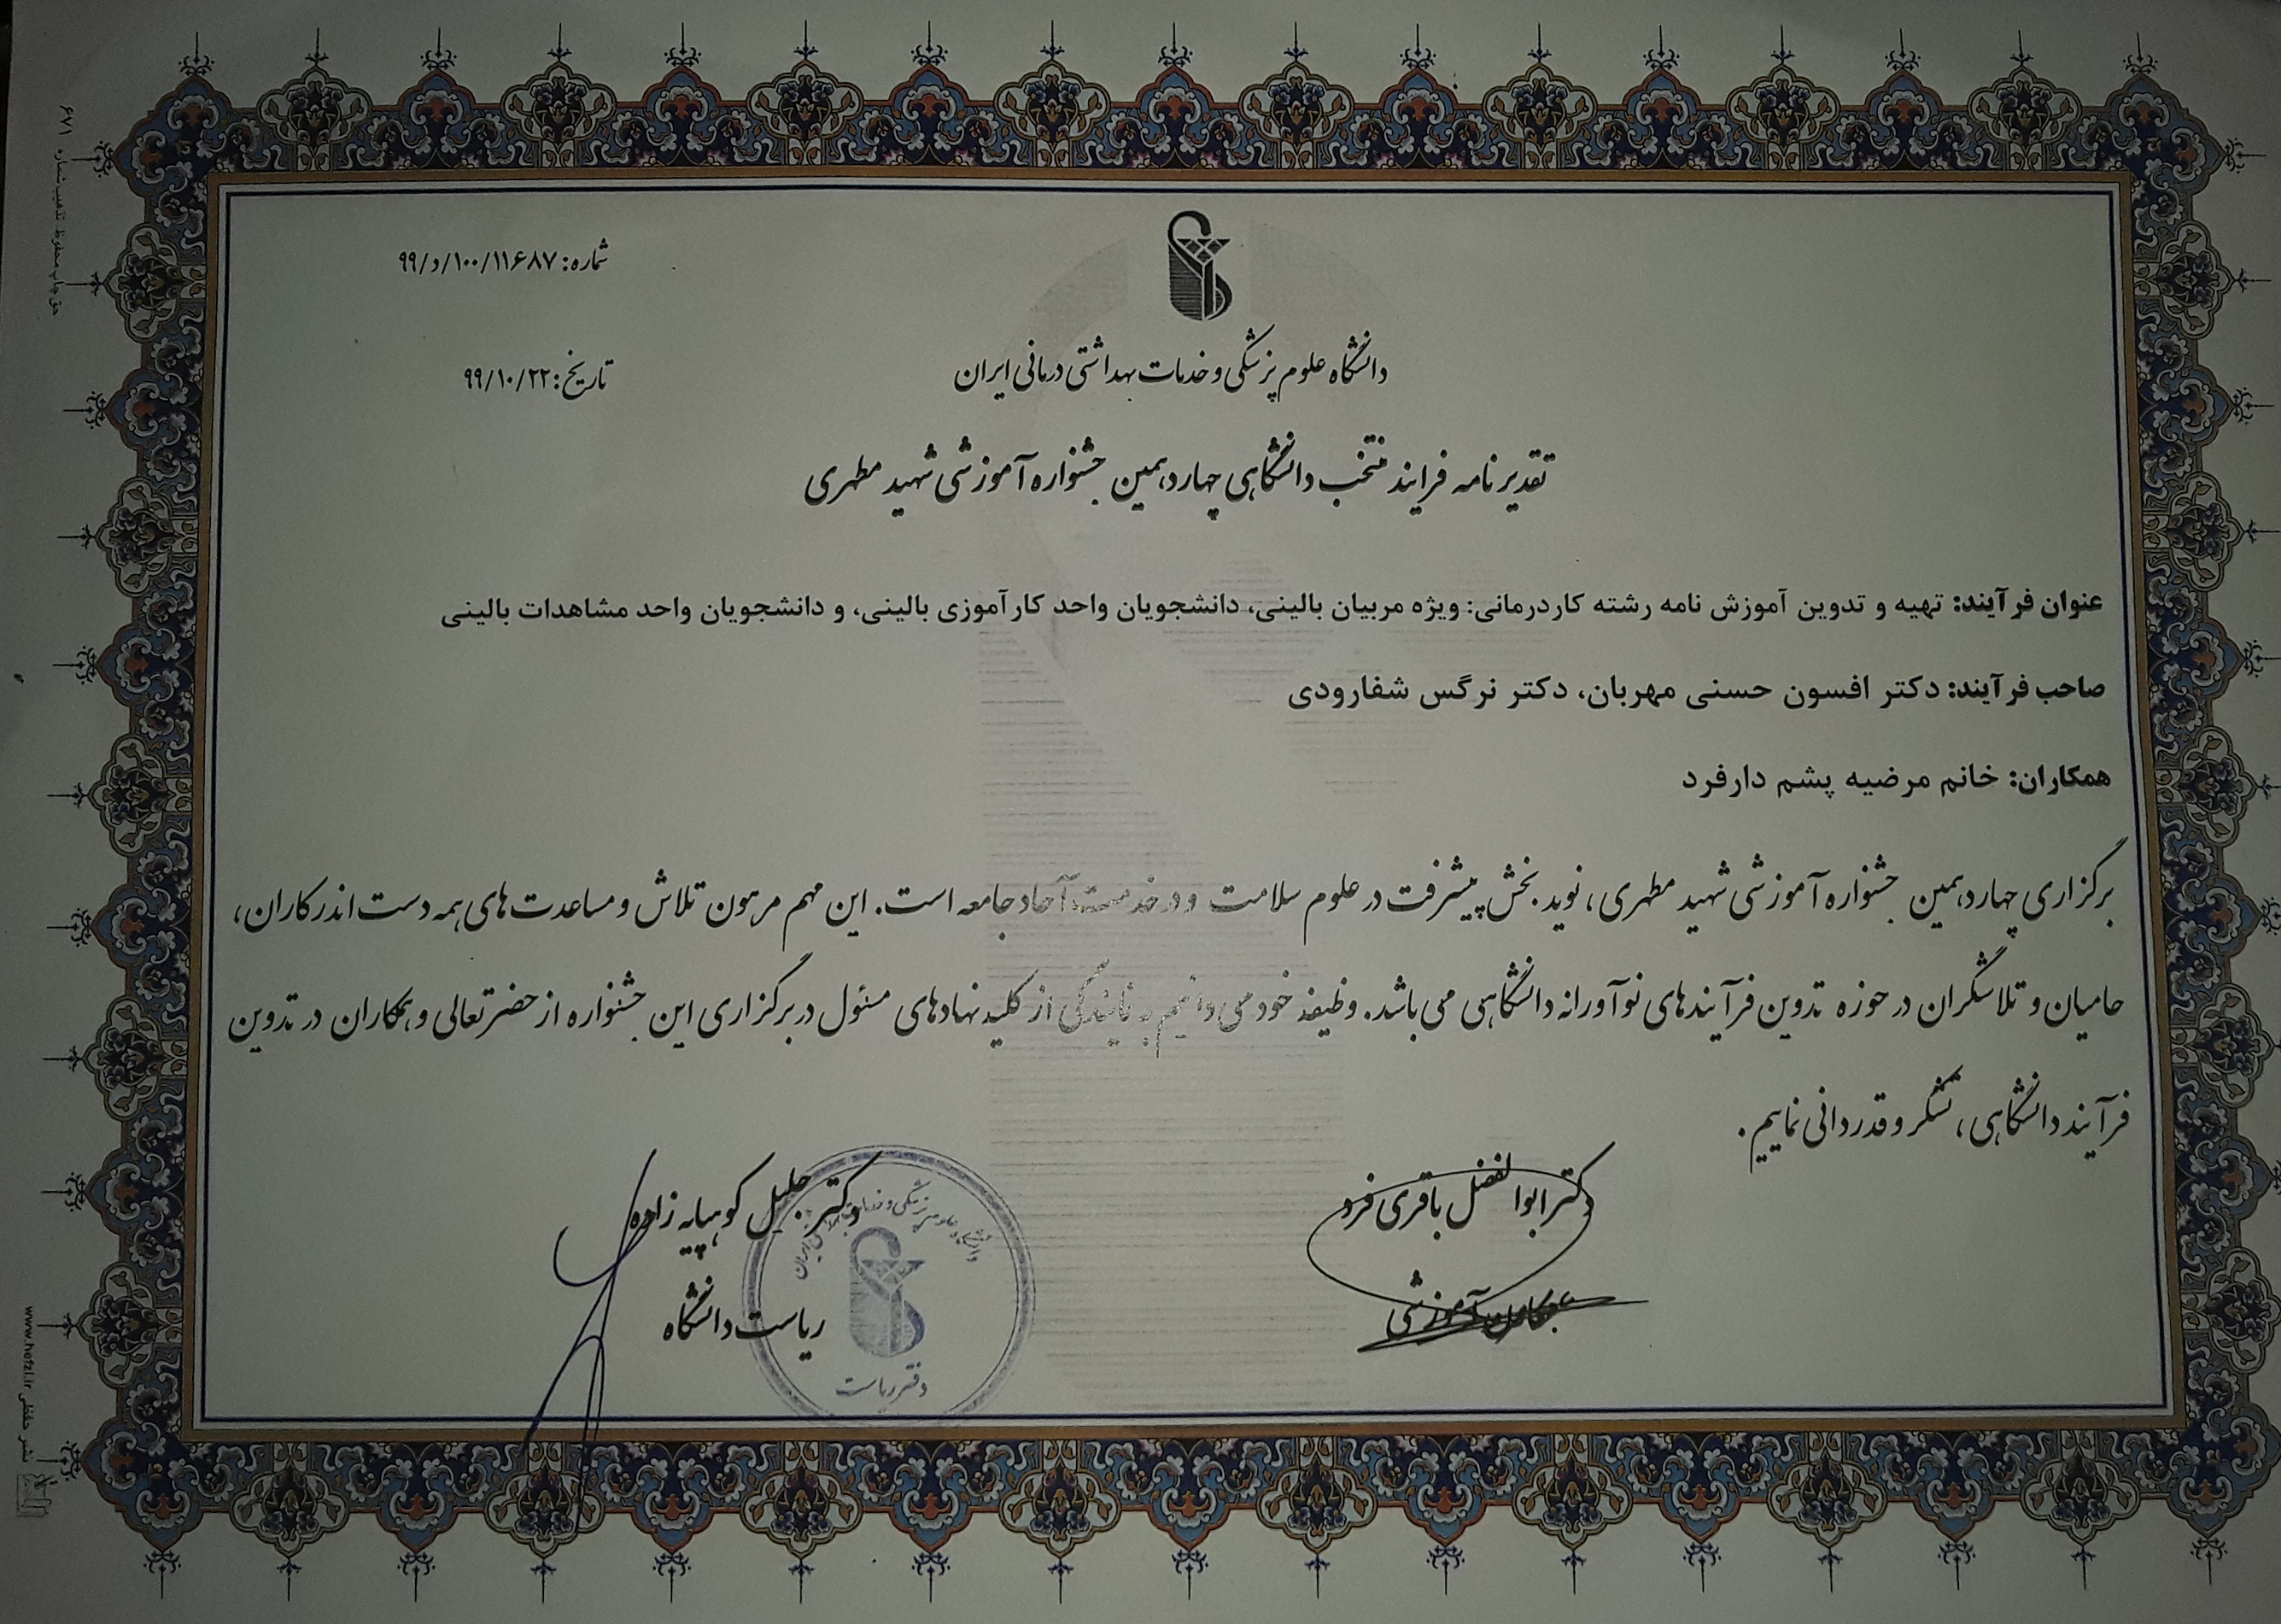 شماره: ۹۹/د/۱۰۰/۱۱۶۸۷
تاریخ: ۹۹/۱۰/۲۲
دانشگاه علوم پزشکی و خدمات بهداشتی درمانی ایران
تقدیرنامه فرایند منتخب دانشگاهی چهاردهمین جشنواره آموزشی شهید مطهری
عنوان فرآیند: تهیه و تدوین آموزش نامه رشته کاردرمانی: ویژه مربیان بالینی، دانشجویان واحد کارآموزی بالینی، و دانشجویان واحد مشاهدات بالینی
صاحب فرآیند: دکتر افسون حسنی مهربان، دکتر نرگس شفارودی
همکاران: خانم مرضیه پشم دارفرد
برگزاری چهاردهمین جشنواره آموزشی شهید مطهری، نوید بخش پیشرفت در علوم سلامت و در خدمت آحاد جامعه است. این مهم مرهون تلاش و مساعدت های همه دست اندرکاران،
حامیان و تلاشگران در حوزه تدوین فرآیندهای نوآورانه دانشگاهی می باشد. وظیفه خود می دانیم به نمایندگی از کلیه نهادهای مسئول در برگزاری این جشنواره از حضرتعالی و همکاران در تدوین
فرآیند دانشگاهی، تشکر و قدردانی نماییم.
دکتر ابوالفضل باقری فرد
آموزشی
دکتر جلیل کوهپایه زاده
ریاست دانشگاه
دانشگاه علوم پزشکی و خدمات ایران
دفتر ریاست
حق چاپ محفوظ تذهیب شماره ۶۷۱
نشر حفظی www.hefzi.ir